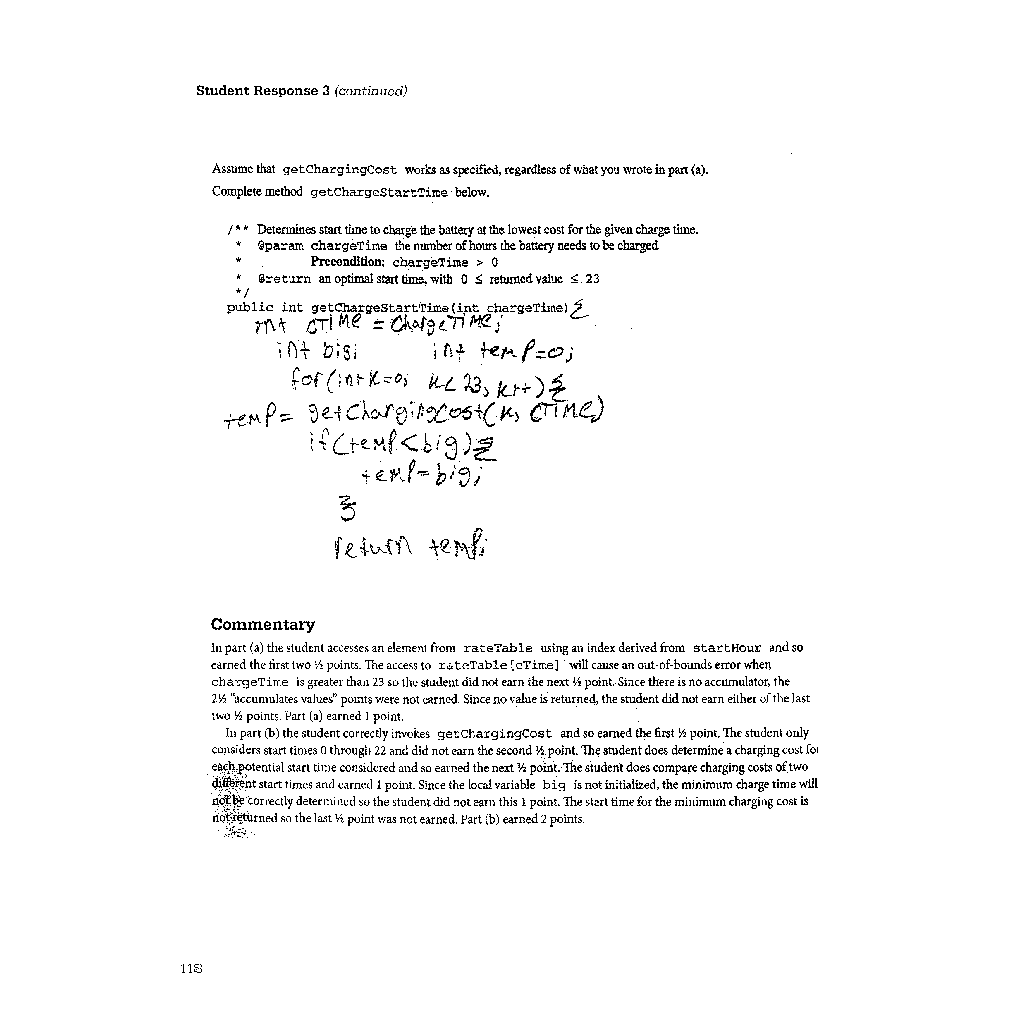 Student Response 3 (continued)
Assume that getChargingCost works as specified, regardless of what you wrote in part (a).
Complete method getChargeStartTime below.
/** Determines start time to charge the battery at the lowest cost for the given charge time.
* @param chargeTime the number of hours the battery needs to be charged
* Precondition: chargeTime > 0
* @return an optimal start time, with 0 ≤ returned value ≤ 23
*/
public int getChargeStartTime(int chargeTime) {
int cTime = ChargeTime;
int big; int temp=0;
for(int K=0; K<23; K++) {
temp= getChargingCost(K, cTime)
if(temp<big) {
temp=big;
}
return temp;
Commentary
In part (a) the student accesses an element from rateTable using an index derived from startHour and so
earned the first two ½ points. The access to rateTable[cTime] will cause an out-of-bounds error when
chargeTime is greater than 23 so the student did not earn the next ½ point. Since there is no accumulator, the
2½ "accumulates values" points were not earned. Since no value is returned, the student did not earn either of the last
two ½ points. Part (a) earned 1 point.
In part (b) the student correctly invokes getChargingCost and so earned the first ½ point. The student only
considers start times 0 through 22 and did not earn the second ½ point. The student does determine a charging cost for
each potential start time considered and so earned the next ½ point. The student does compare charging costs of two
different start times and earned 1 point. Since the local variable big is not initialized, the minimum charge time will
not be correctly determined so the student did not earn this 1 point. The start time for the minimum charging cost is
not returned so the last ½ point was not earned. Part (b) earned 2 points.
118